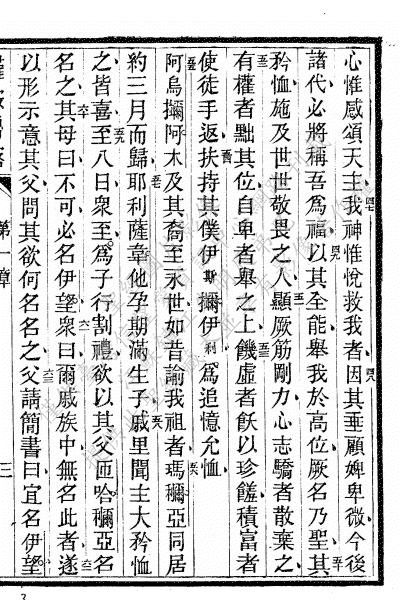 心惟感頌天主我神惟悅救我者因其垂顧婢卑微今後
諸代必將稱吾爲福以其全能舉我於高位厥名乃聖其
矜恤施及世世敬畏之人顯厥筋剛力心志驕者散棄之
有權者黜其位自卑者舉之上饑虛者飫以珍饈積富者
使徒手返扶持其僕伊斯擱伊利爲追憶允恤
阿烏擱阿木及其裔至永世如昔諭我祖者瑪穪亞同居
約三月而歸耶利薩韋他孕期滿生子戚里聞主大矜恤
之皆喜至八日衆至爲子行割禮欲以其父匝哈穪亞名
名之其母曰不可必名伊望衆曰爾戚族中無名此者遂
以形示意其父問其欲何名名之父請簡書曰宜名伊望
第一章
三
3